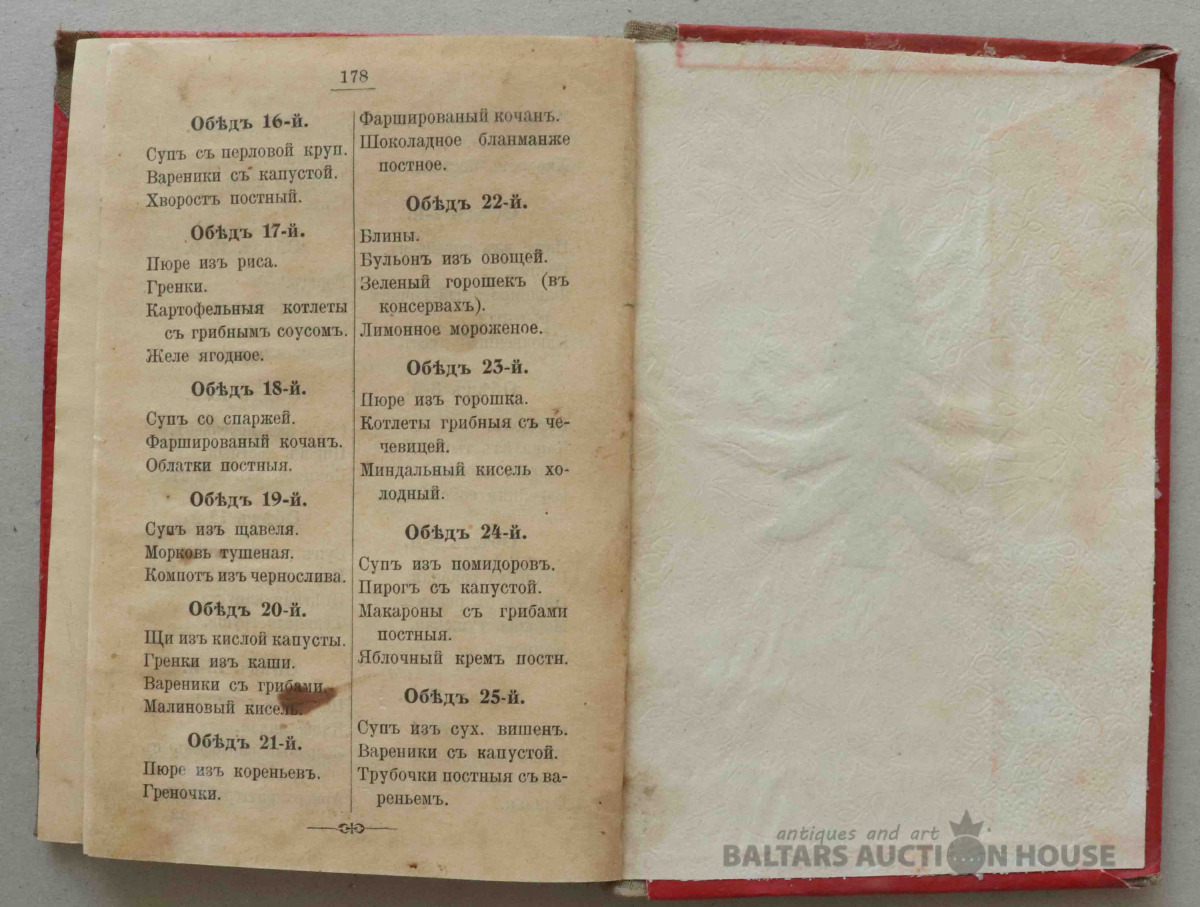 178
Обѣдъ 16-й.
Супъ съ перловой круп.
Вареники съ капустой.
Хворостъ постный.
Обѣдъ 17-й.
Пюре изъ риса.
Гренки.
Картофельныя котлеты
съ грибнымъ соусомъ.
Желе ягодное.
Обѣдъ 18-й.
Супъ со спаржей.
Фаршированый кочанъ.
Облатки постныя.
Обѣдъ 19-й.
Супъ изъ щавеля.
Морковь тушеная.
Компотъ изъ чернослива.
Обѣдъ 20-й.
Щи изъ кислой капусты.
Гренки изъ каши.
Вареники съ грибами.
Малиновый кисель.
Обѣдъ 21-й.
Пюре изъ кореньевъ.
Греночки.
Фаршированый кочанъ.
Шоколадное бланманже
постное.
Обѣдъ 22-й.
Блины.
Бульонъ изъ овощей.
Зеленый горошекъ (въ
консервахъ).
Лимонное мороженое.
Обѣдъ 23-й.
Пюре изъ горошка.
Котлеты грибныя съ че-
чевицей.
Миндальный кисель хо-
лодный.
Обѣдъ 24-й.
Супъ изъ помидоровъ.
Пирогъ съ капустой.
Макароны съ грибами
постныя.
Яблочный кремъ постн.
Обѣдъ 25-й.
Супъ изъ сух. вишенъ.
Вареники съ капустой.
Трубочки постныя съ ва-
реньемъ.
antiques and art
BALTARS AUCTION HOUSE